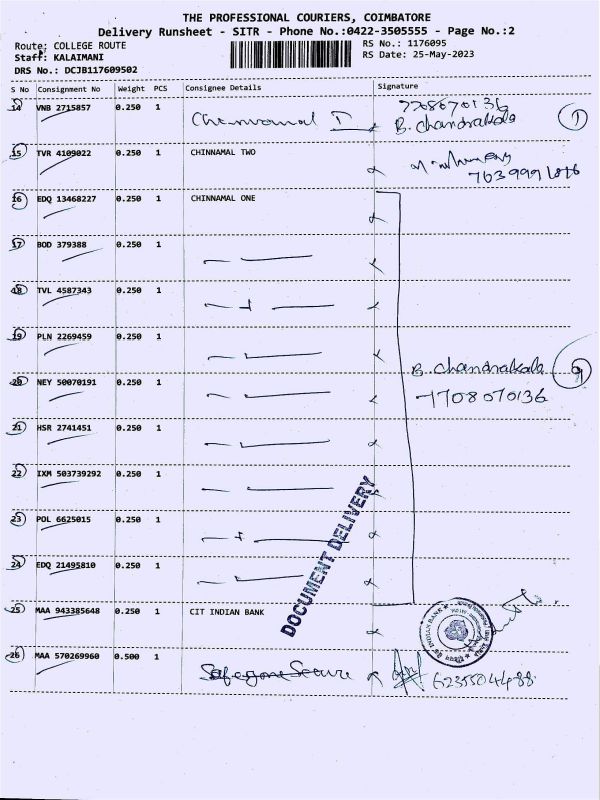 THE PROFESSIONAL COURIERS, COIMBATORE
Delivery Runsheet - SITR - Phone No.:0422-3505555 - Page No.:2
Route: COLLEGE ROUTE
RS No.: 1176095
Staff: KALAIMANI
RS Date: 25-May-2023
DRS No.: DCJB117609502
S No Consignment No Weight PCS Consignee Details Signature
14 VNB 2715857 0.250 1
B. Chandrakala 1
15 TVR 4109022 0.250 1 CHINNAMAL TWO
16 EDQ 13468227 0.250 1 CHINNAMAL ONE
17 BOD 379388 0.250 1
18 TVL 4587343 0.250 1
19 PLN 2269459 0.250 1
B. Chandrakala 9
20 NEY 50070191 0.250 1
7708070136
21 HSR 2741451 0.250 1
22 IXM 503739292 0.250 1
23 POL 6625015 0.250 1
24 EDQ 21495810 0.250 1
DOCUMENT DELIVERY
25 MAA 943385648 0.250 1 CIT INDIAN BANK
INDIAN BANK
26 MAA 570269960 0.500 1